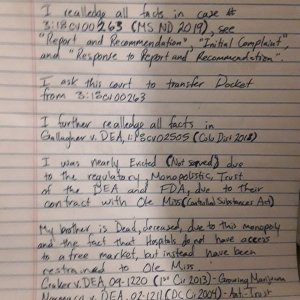 I realledge all facts in case #
3:18cv00263 (MS ND 2019), see
"Report and Recommendation", "Initial Complaint",
and "Response to Report and Recommendation".
I ask this court to transfer Docket
from 3:18cv00263
I further realledge all facts in
Gallagher v. DEA, 1:18cv02505 (Colo Dist 2018)
I was nearly Evicted (Not served) due
to the regulatory, Monopolistic, Trust
of the DEA and FDA, due to their
contract with Ole Miss (Controlled Substances Act)
My brother is Dead, deceased, due to this monopoly
and the fact that Hospitals do not have access
to a free market, but instead have been
restrained to Ole Miss
Craker v. DEA, 09-1220 (1st Cir 2013) - Growing Marijuana
v. DEA, 02-1211 (DC Cir 2004) - Anti-Trust